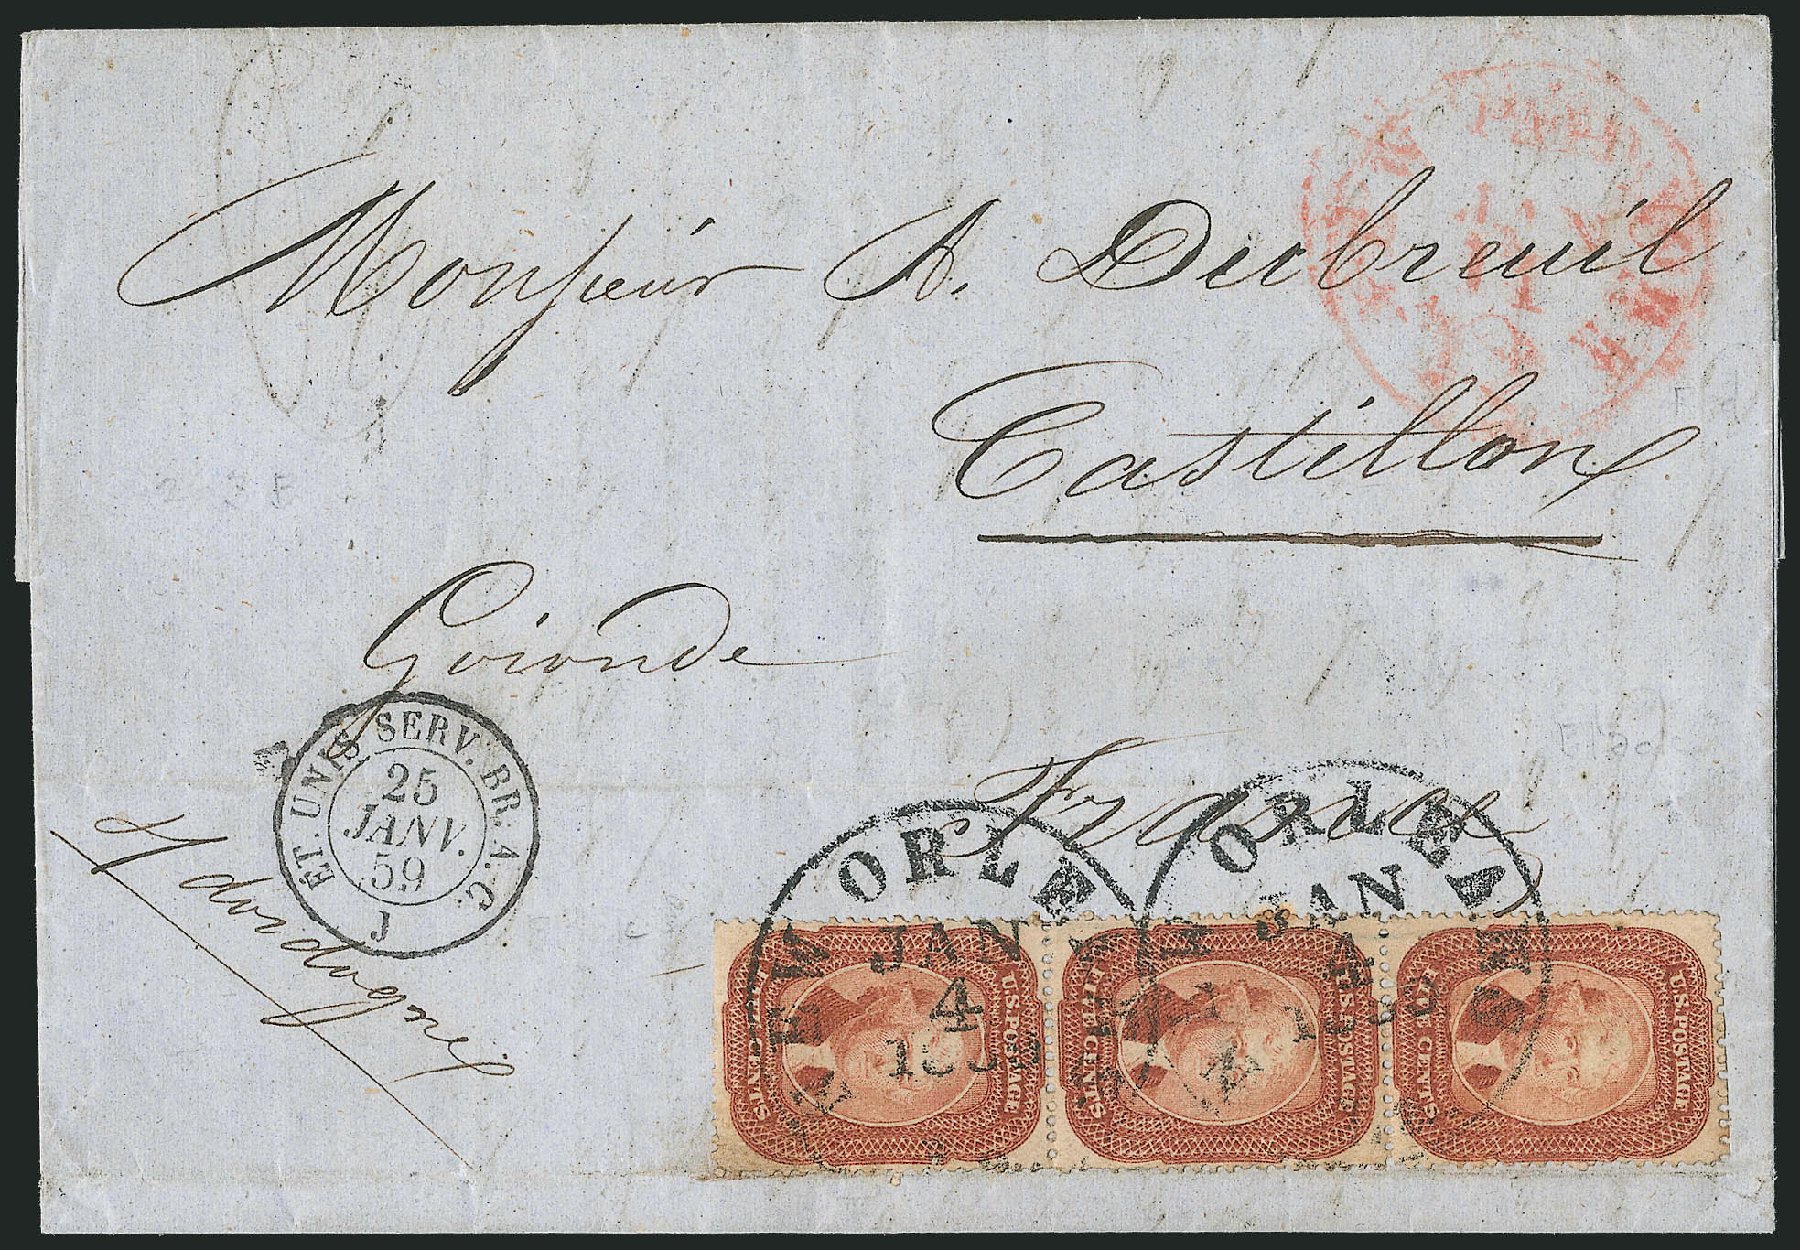 Monsieur A. Dubreuil
Castillon
Gironde
France
/ dordogne /
ET. UNIS SERV. BR. A. C.
25
JANV.
59
J
NEW ORLE
JAN
4
ORLEA
JAN
4
PAID
U.S. POSTAGE
FIVE CENTS
U.S. POSTAGE
FIVE CENTS
U.S. POSTAGE
FIVE CENTS